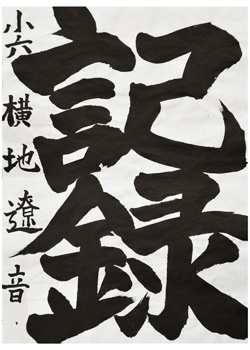 記録
小六 横地遼音